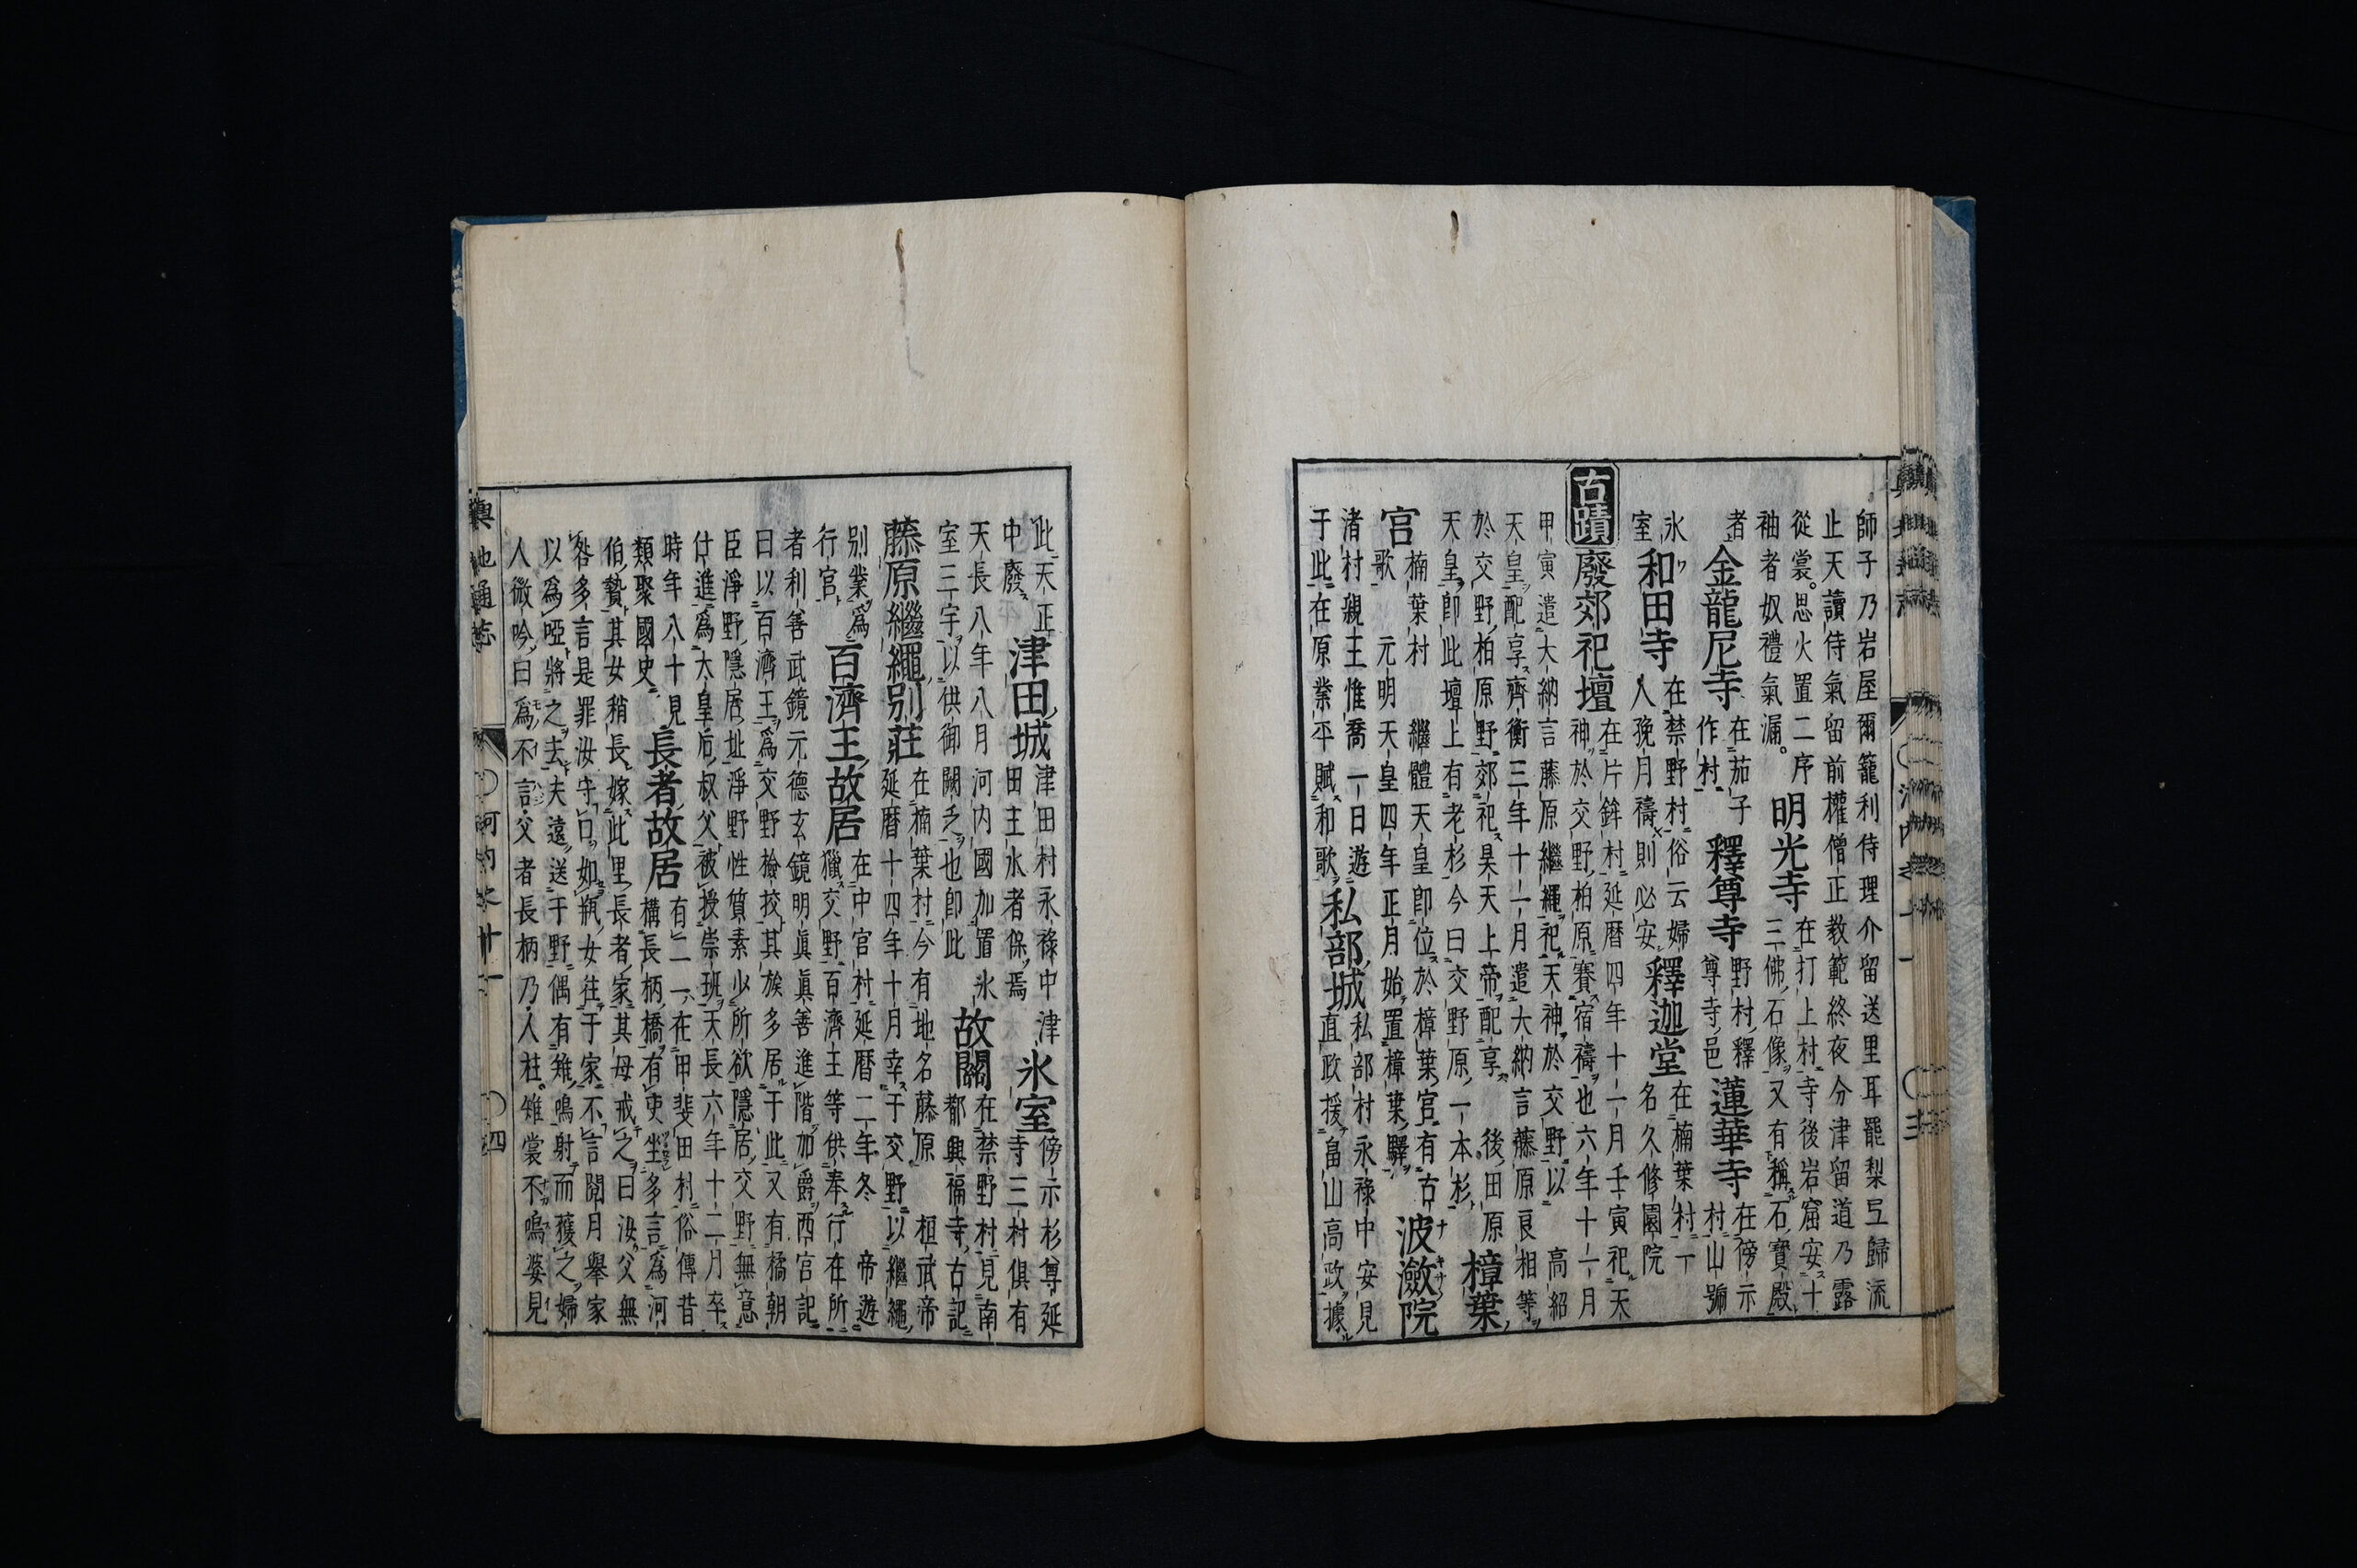 師子乃岩屋爾籠利侍理介留送里耳罷梨弖歸流
止天讀侍氣留前權僧正教範終夜分津留道乃露
從裳思火置二序 明光寺 在打上村寺後岩窟安十
袖者奴禮氣漏 三佛石像又有稱石寶殿
者 金龍尼寺 在茄子作村 釋尊寺 野村釋尊寺邑 蓮華寺 在傍示村山號
氷室 和田寺 在禁野村俗云婦人娩月禱則必安 釋迦堂 在楠葉村一名久修園院
古蹟 廢郊祀壇 在片鉾村延暦四年十一月壬寅祀天
神於交野柏原賽宿禱也六年十一月
甲寅遣大納言藤原繼繩祀天神於交野以高紹
天皇配享齊衡三年十一月遣大納言藤原良相等
於交野柏原野郊祀昊天上帝配享後田原
天皇卽此壇上有老杉今曰交野原一本杉 樟葉
宮 楠葉村繼體天皇卽位於樟葉宮有古歌
元明天皇四年正月始置樟葉驛 波瀲院
渚村親王惟喬一日遊
于此在原業平賦和歌 私部城 私部村永祿中安見直政援畠山高政據
此天正中廢 津田城 津田村永祿中津田主水者保焉 氷室 傍示杉尊延寺三村俱有
天長八年八月河内國加置氷
室三宇以供御闕乏也卽此 故關 在禁野村見南都興福寺古記
藤原繼繩別莊 在楠葉村今有地名藤原桓武帝
延暦十四年十月幸于交野以繼繩
別業爲行宮 百濟王故居 在中宮村延暦二年冬帝遊
獵交野百濟王等供奉行在所
者利善武鏡元德玄鏡明眞眞善進階加爵西宮記
曰以百濟王爲交野檢挍其族多居于此又有橘朝
臣淨野隱居址淨野性質素少所欲隱居交野無意
仕進爲大皇后叔父被授崇班天長六年十二月卒
時年八十見類聚國史 長者故居 有二一在甲斐田村俗傳昔
構長柄橋有吏坐多言爲河
伯贄其女稍長嫁此里長者家其母戒之曰汝父無
咎多言是罪汝守口如瓶女往于家不言閱月舉家
以爲啞將之去夫遠送于野偶有雉鳴射而獲之婦
人微吟曰爲不言父者長柄乃人柱雉裳不鳴婆見
輿地通志
四